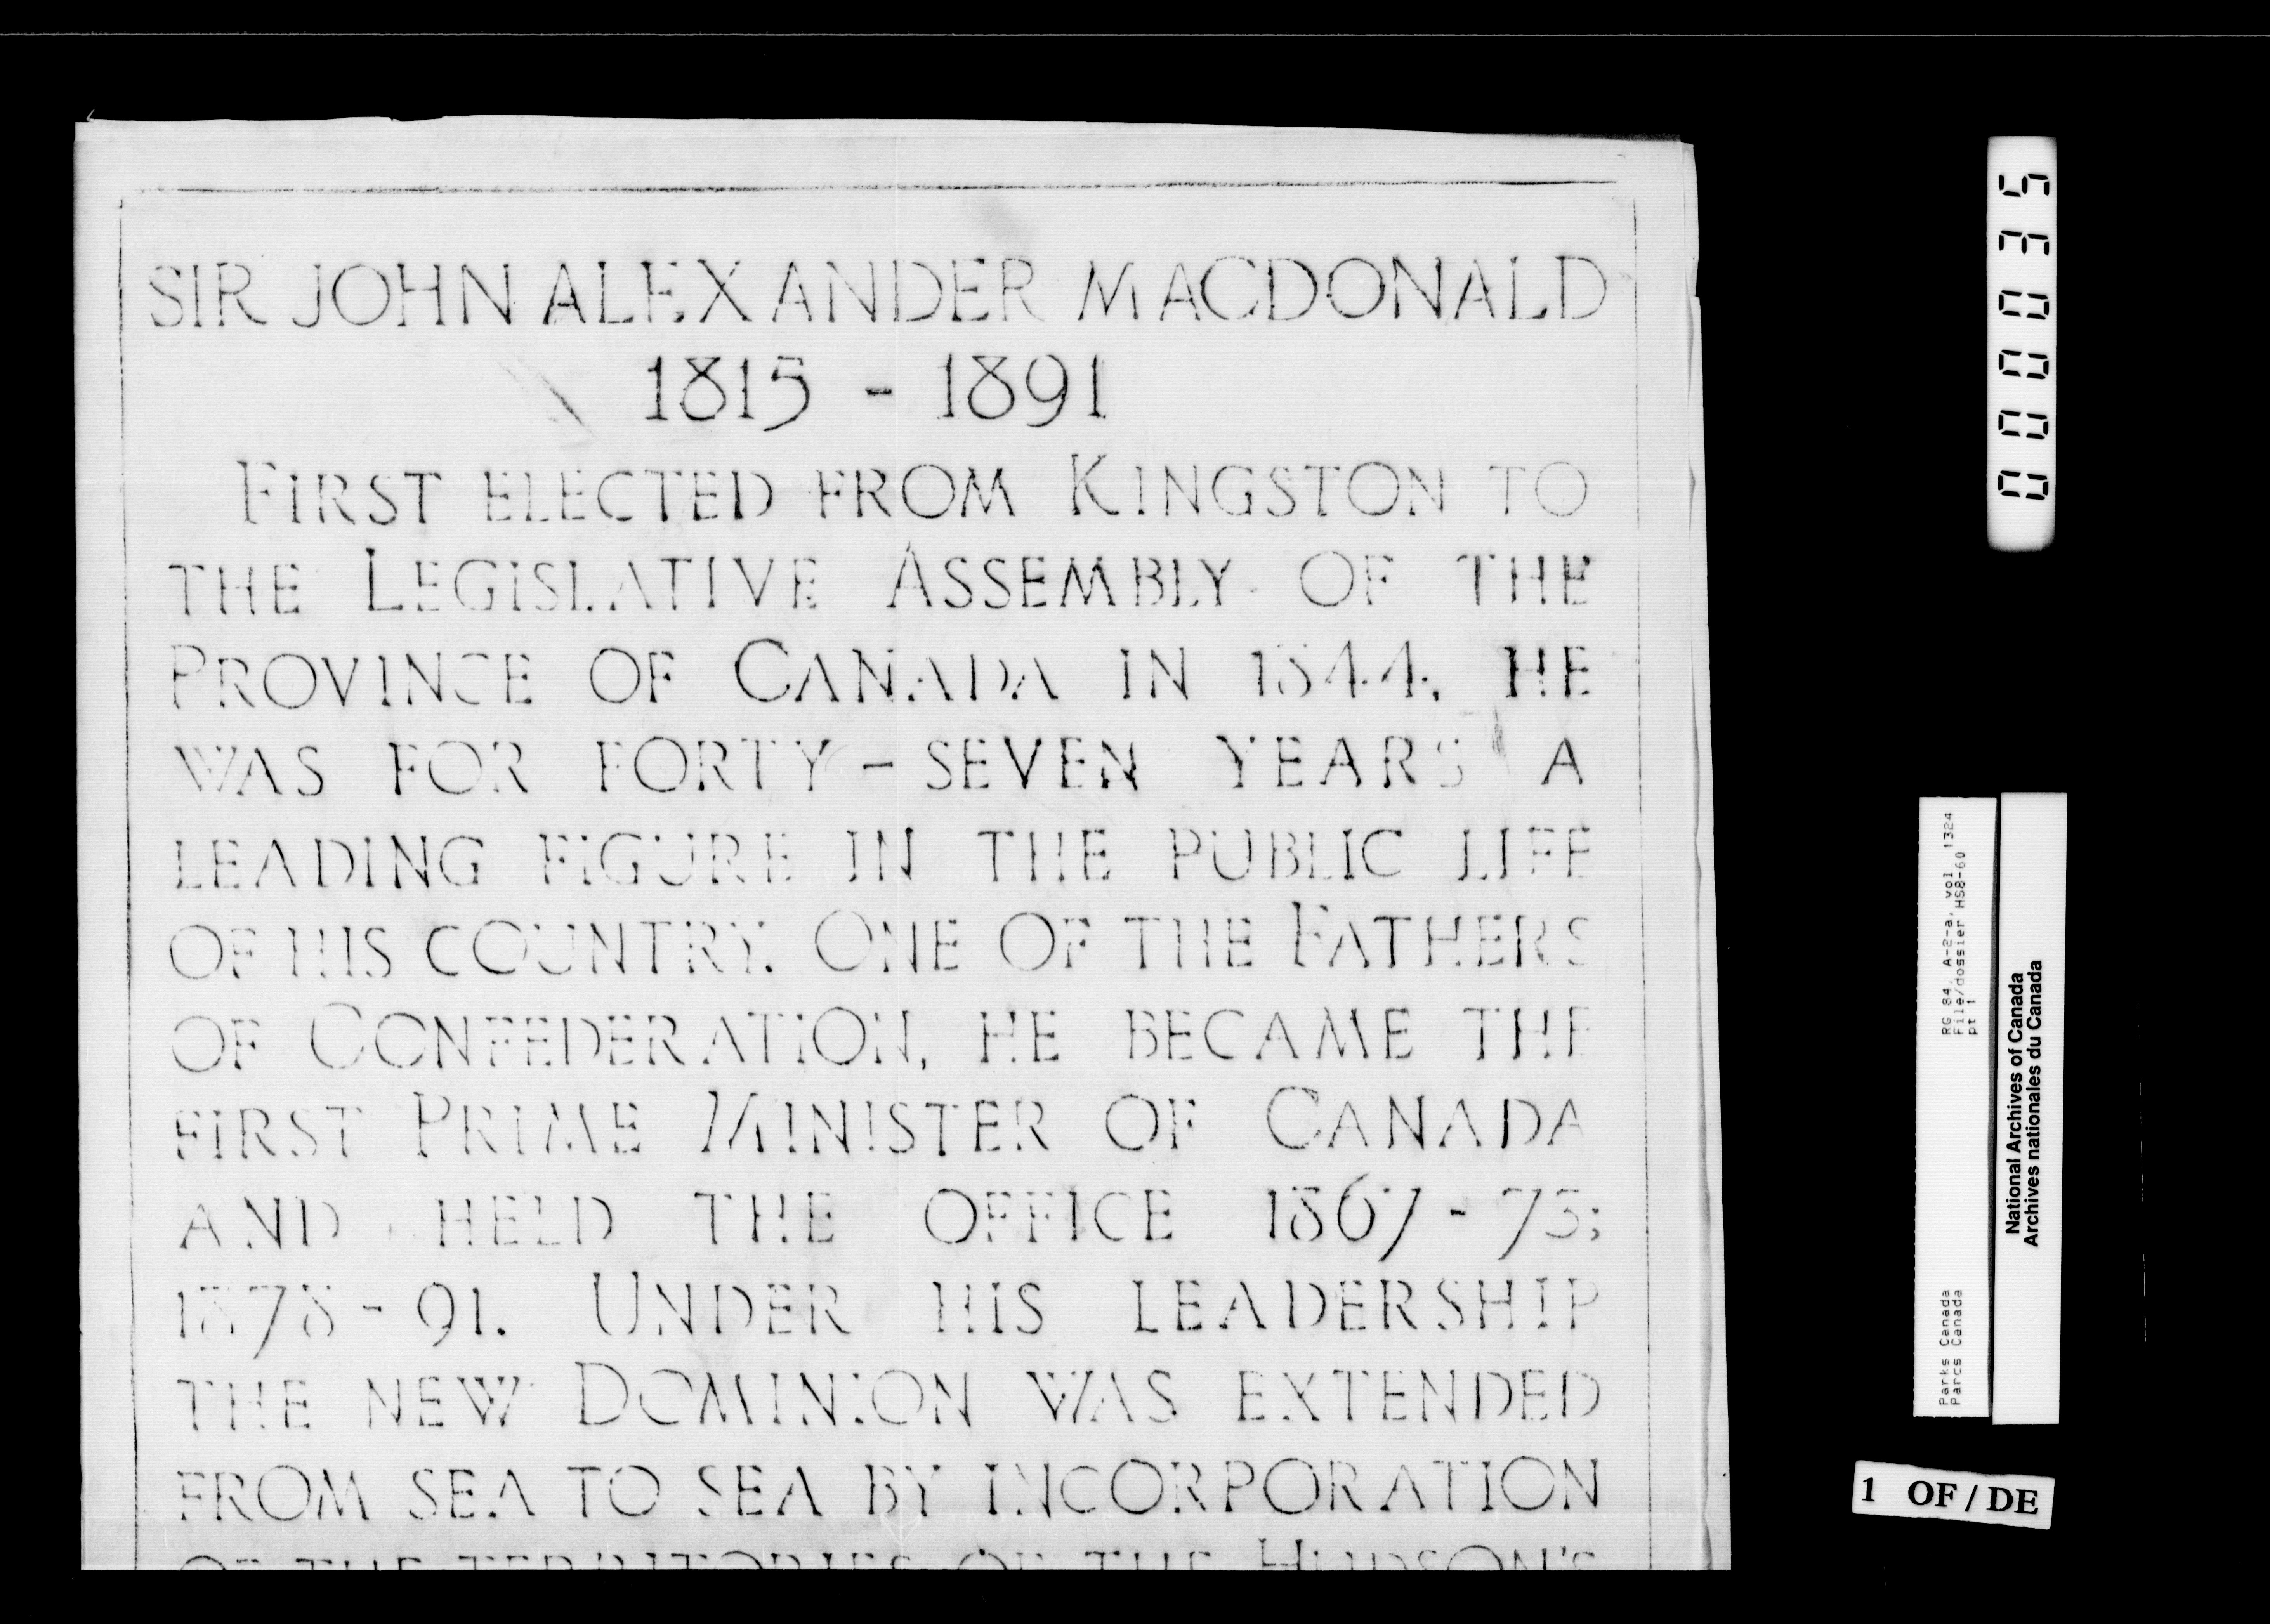 SIR JOHN ALEXANDER MACDONALD
1815 - 1891
FIRST ELECTED FROM KINGSTON TO
THE LEGISLATIVE ASSEMBLY OF THE
PROVINCE OF CANADA IN 1844, HE
WAS FOR FORTY-SEVEN YEARS A
LEADING FIGURE IN THE PUBLIC LIFE
OF HIS COUNTRY. ONE OF THE FATHERS
OF CONFEDERATION, HE BECAME THE
FIRST PRIME MINISTER OF CANADA
AND HELD THE OFFICE 1867-73;
1878-91. UNDER HIS LEADERSHIP
THE NEW DOMINION WAS EXTENDED
FROM SEA TO SEA BY INCORPORATION
OF THE TERRITORIES OF THE HUDSON'S
000035
RG 84, A-2-a, vol. 1324
File/dossier HS8-60
pt 1
Parks Canada
Parcs Canada
National Archives of Canada
Archives nationales du Canada
1 OF / DE